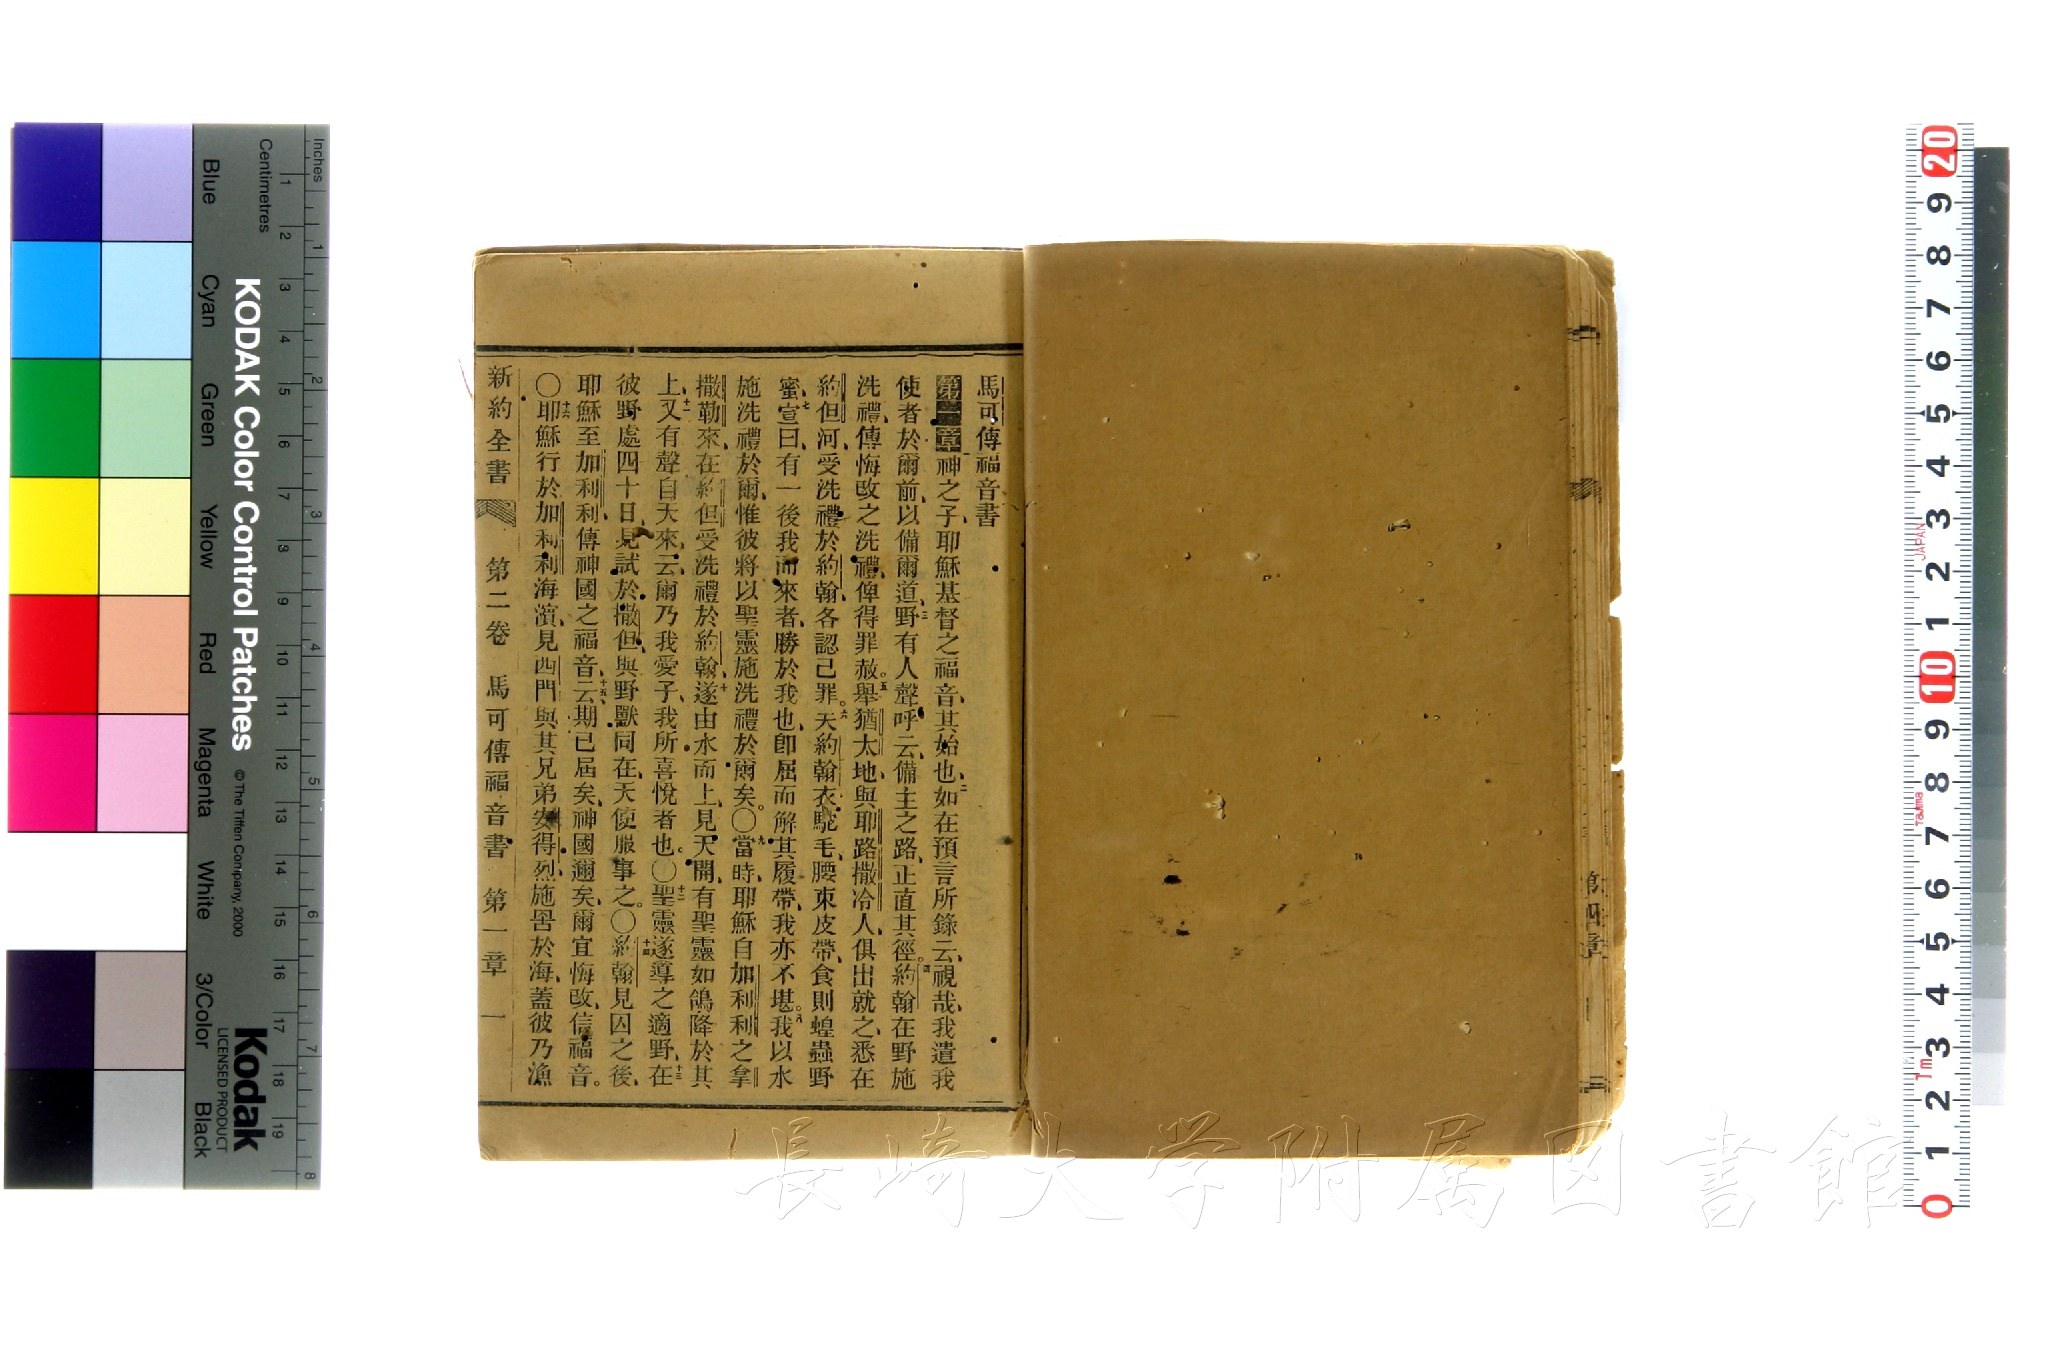 馬可傳福音書
第一章神之子耶穌基督之福音、其始也、二如在預言所錄云、視哉、我遣我
使者於爾前、以備爾道、三野有人聲呼云、備主之路、正直其徑。四約翰在野施
洗禮、傳悔改之洗禮、俾得罪赦。五舉猶太地、與耶路撒冷人、俱出就之、悉在
約但河、受洗禮於約翰、各認己罪。六夫約翰衣駝毛、腰束皮帶、食則蝗蟲野
蜜、七宣曰、有一後我而來者、勝於我也、卽屈而解其履帶、我亦不堪。八我以水
施洗禮於爾、惟彼將以聖靈施洗禮於爾矣。〇九當時、耶穌自加利利之拿
撒勒來、在約但受洗禮於約翰、十遂由水而上、見天開、有聖靈如鴿降於其
上、十一又有聲自天來、云、爾乃我愛子、我所喜悅者也。〇十二聖靈遂導之適野、十三在
彼野處四十日、見試於撒但、與野獸同在、天使服事之。〇十四約翰見囚之後、
耶穌至加利利、傳神國之福音、十五云、期已屆矣、神國邇矣、爾宜悔改、信福音。
〇十六耶穌行於加利利海濱、見西門與其兄弟安得烈、施罟於海、蓋彼乃漁
新約全書 第二卷 馬可傳福音書 第一章 一
第四章
KODAK Color Control Patches © The Tiffen Company, 2000 Kodak
LICENSED PRODUCT
Inches 1 2 3 4 5 6 7 8
Centimetres 1 2 3 4 5 6 7 8 9 10 11 12 13 14 15 16 17 18 19
Blue Cyan Green Yellow Red Magenta White 3/Color Black
20 9 8 7 6 5 4 3 2 1 10 9 8 7 6 5 4 3 2 1 0
JAPAN
TaJIma
1m
長崎大学附属図書館